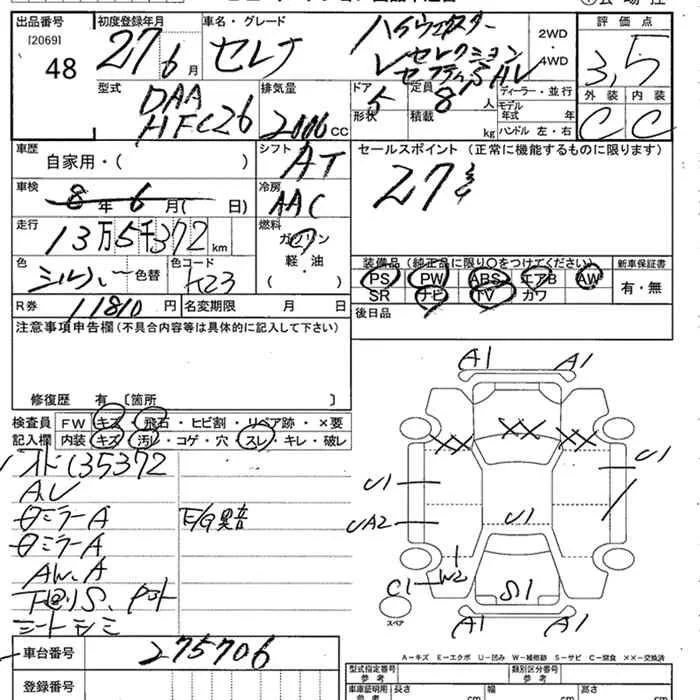 出品番号
[2069]
48
初度登録年月
27年6月
車名・グレード
セレナ
ハイウェイスター
Vセレクション
セーフティS HV
2WD
・
4WD
評価点
3.5
外装 内装
C C
型式
DAA
HFC26
排気量
2000cc
ドア
5
形状
定員
8人
積載
kg
ディーラー・並行
モデル年式 年
ハンドル 左・右
車歴
自家用・( )
シフト
AT
セールスポイント (正常に機能するものに限ります)
車検
8年6月( 日)
冷房
AAC
走行
13万5千372km
燃料
ガソリン
軽・油
( )
色
シルバー 色替
色コード
K23
装備品(純正品に限り○をつけてください)
PS PW ABS エアB AW
SR ナビ TV カワ
新車保証書
有・無
R券 11810円
名変期限 月 日
後日品
注意事項申告欄(不具合内容等は具体的に記入して下さい)
修復歴 有 〔箇所 〕
検査員
記入欄
FW キズ・飛石・ヒビ割・リペア跡・×要
内装 キズ・汚レ・コゲ・穴・スレ・キレ・破レ
オドじ35372
Aし
ロミラーA
E/G異音
ロミラーA
AW.A
シートシミ
A1 A1
XX XX XX
U1 U1
UA2 U1
C1 W2
S1
A1 A1
スペア
A-キズ E-エクボ U-凹み W-補修跡 S-サビ C-腐食 ××-交換済
車台番号 275706
登録番号
型式指定番号
参考
類別区分番号
参考
車庫証明用
参考
長さ cm
幅 cm
高さ cm